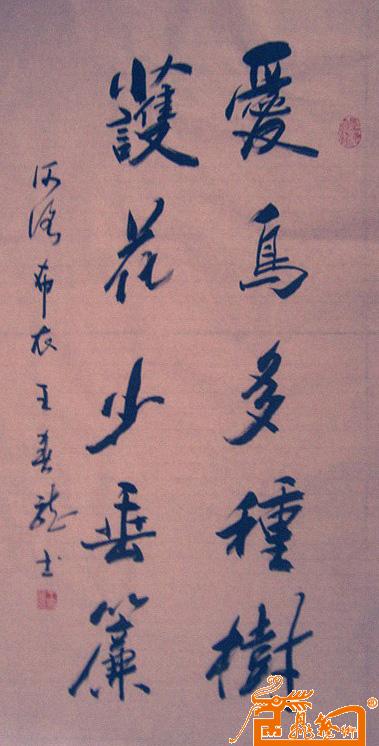 愛鳥多種樹
護花少垂簾
河洛布衣王春龍书